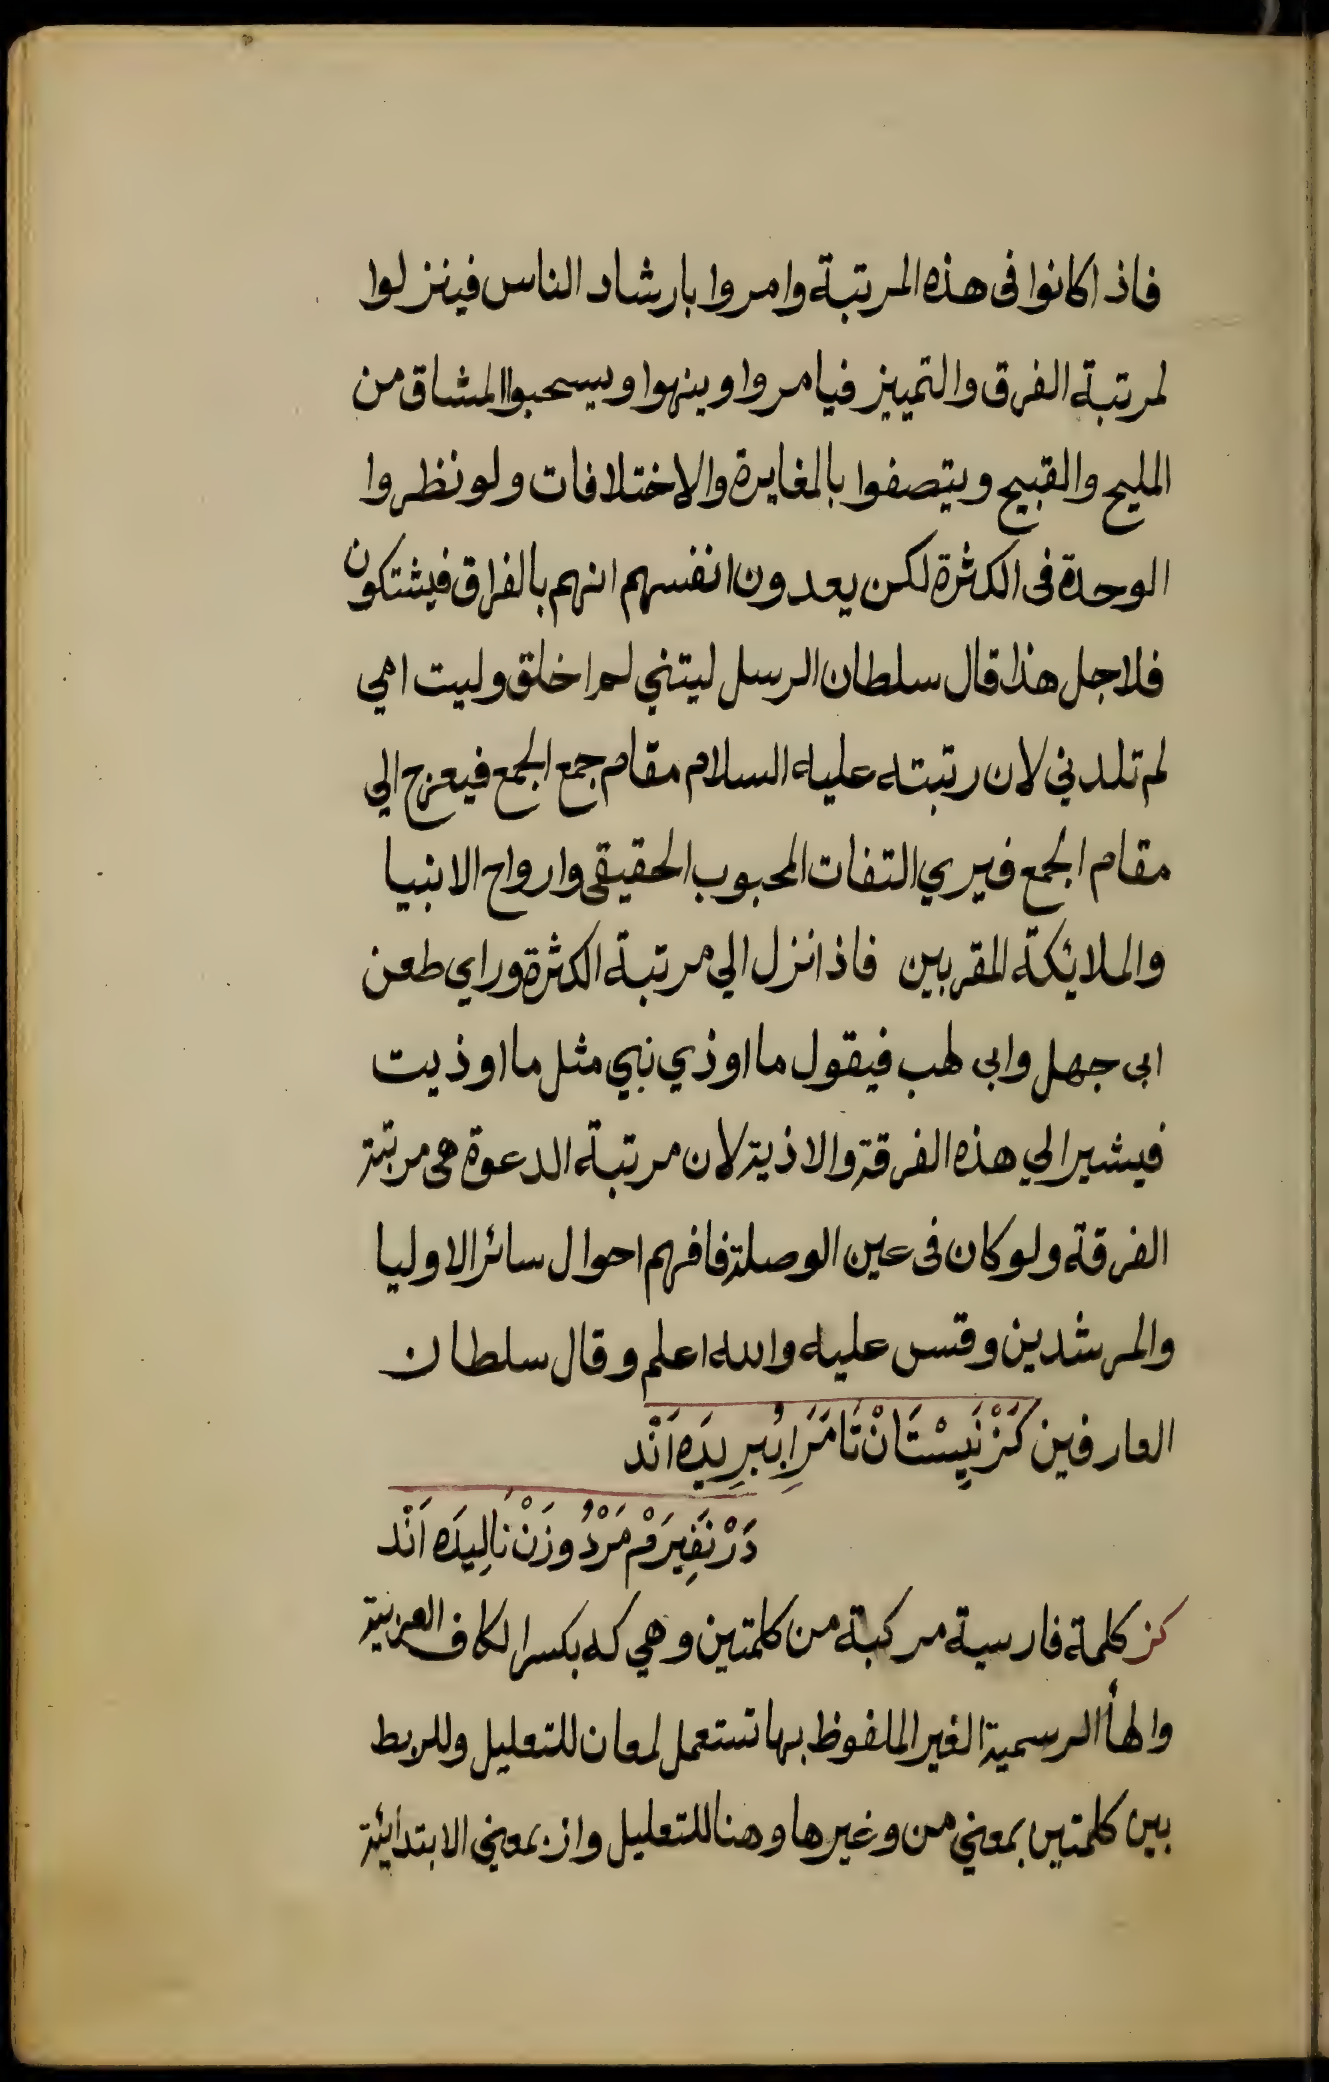 فاذا كانوا فى هذه المرتبة وامروا بارشاد الناس فينزلوا
لمرتبة الفرق والتمييز فيامروا وينهوا ويسحبوا المشاق من
المليح والقبيح ويتصفوا بالمغايرة والاختلافات ولو نظروا
الوحدة فى الكثرة لكن يعدون انفسهم انهم بالفراق فيشتكون
فلاجل هذا قال سلطان الرسل ليتني لم اخلق وليت امي
لم تلدني لان رتبته عليه السلام مقام جمع الجمع فيعرج الي
مقام الجمع فيري التفات المحبوب الحقيقى وارواح الانبيا
والملائكة المقربين فاذا نزل الي مرتبة الكثرة وراي طعن
ابى جهل وابى لهب فيقول ما اوذي نبي مثل ما اوذيت
فيشير الي هذه الفرقة والاذية لان مرتبة الدعوة هى مرتبة
الفرقة ولو كان فى عين الوصلة فافهم احوال سائر الاوليا
والمرشدين وقس عليه والله اعلم وقال سلطان
العارفين كَزْ نَيِسْتَانْ تَا مَرَا بُبرِيدَه اَنْد
دَرْ نَفِيرَمْ مَرْدُ وزَنْ نَالِيدَه اَنْد
كز كلمة فارسية مركبة من كلمتين وهي كه بكسر الكاف العربية
والهأ الرسمية الغير الملفوظ بها تستعمل لمعان للتعليل وللربط
بين كلمتين بمعني من وغيرها وهنا للتعليل واز بمعني الابتدائية